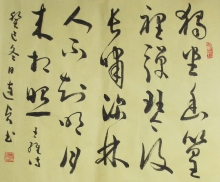 独坐幽篁
裡弹琴復
长啸深林
人不知明月
来相照 王维诗
癸巳冬日建安书